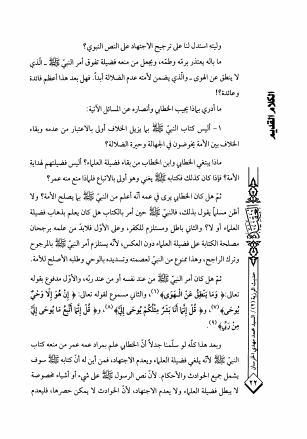 وليته استدل لنا على ترجيح الاجتهاد على النص النبوي؟
ما باله يعتذر برمّه وطمّه، ويجعل من منعه فضيلة تفوق أمر النبيّ ﷺ ـ الّذي
لا ينطق عن الهوى ـ والّذي يضمن لأمته عدم الضلالة أبداً. فهل بعد هذا أعظم فائدة
وعائدة؟!
ما أدري بماذا يجيب الخطابي وأنصاره عن المسائل الآتية:
١ - أليس كتاب النبيّ ﷺ بما يزيل الخلاف أولى بالاعتبار من عدمه وبقاء
الخلاف بين الأمة يخوضون في الجهالة وحيرة الضلالة؟
ماذا ينتفي الخطابي وابن الخطاب من بقاء فضيلة العلماء؟ أليس فضيلتهم لهداية
الأمة؟ فإذا كان كذلك فكتابه ﷺ يغني وهو أولى بالاتباع فلماذا منع منه عمر؟
ثمّ هل كان الخطابي يرى في عمه أنّه أعلم من النبيّ ﷺ بما يصلح الأمة؟ ولا
أظن مسلماً يقول بذلك، فالنبيّ ﷺ حين أمر بالكتاب هل كان يعلم بذهاب فضيلة
العلماء أو لا؟ والثاني باطل ومستلزم للكفر، وعلى الأوّل فلابدّ من علمه برجحان
مصلحة الكتابة على فضيلة العلماء دون العكس، لأنّه يستلزم أمر النبيّ ﷺ بالمرجوح
وترك الراجح، وهذا ممنوع من النبيّ لعصمته وتسديده بالوحي وطلبه الأصلح للأمة.
ثمّ هل كان أمر النبيّ ﷺ من عند نفسه أو من عند ربّه، والأوّل مدفوع بقوله
تعالى: ﴿وَمَا يَنطِقُ عَنِ الْهَوَى﴾(٦)، والثاني مسموع لقوله تعالى: ﴿إِنْ هُوَ إِلَّا وَحْيٌ
يُوحَى﴾(٧) و﴿قُلْ إِنَّمَا أَنَا بَشَرٌ مِثْلُكُمْ يُوحَى إِلَيَّ﴾(٨)، و﴿قُلْ إِنَّمَا أَتَّبِعُ مَا يُوحَى إِلَيَّ
مِن رَبِّي﴾(٩).
وبعد هذا كلّه لو سلّمنا جدلاً أنّ الخطابي علم بمراد عمه عمر من منعه كتاب
النبيّ ﷺ لأنّه يلغي فضيلة العلماء ويعدم الاجتهاد، فمن أين له أنّ كتابه ﷺ سوف
يشمل جميع الحوادث والأحكام. لأنّ نص الرسول ﷺ على شيء أو أشياء مخصوصة
لا يبطل فضيلة العلماء ولا يعدم الاجتهاد، لأنّ الحوادث لا يمكن حصرها، فليعدم
الكلام القديم
٢٢